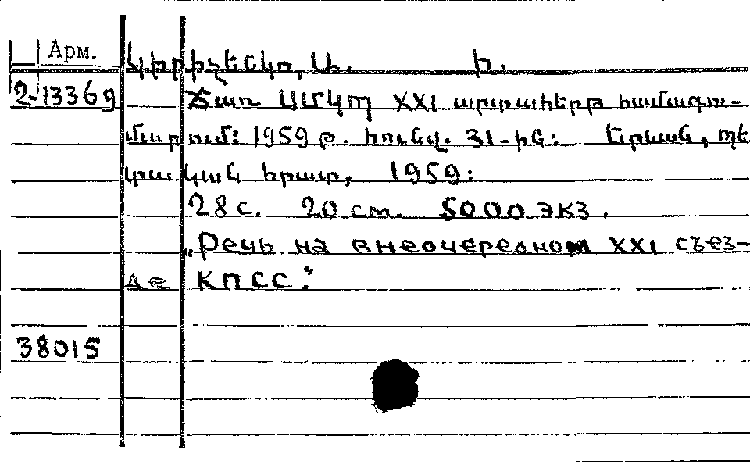 Арм.
Կիրիչենկո, Ա. Ի.
2-13369 Ճառ ՍՄԿՊ XXI արտահերթ համագու-
մարում: 1959 թ. հունվ. 31-ին: Երևան, պե
տական հրատ, 1959:
28 с. 20 см. 5000 экз.
„Речь на внеочередном XXI съез-
де КПСС."
38015